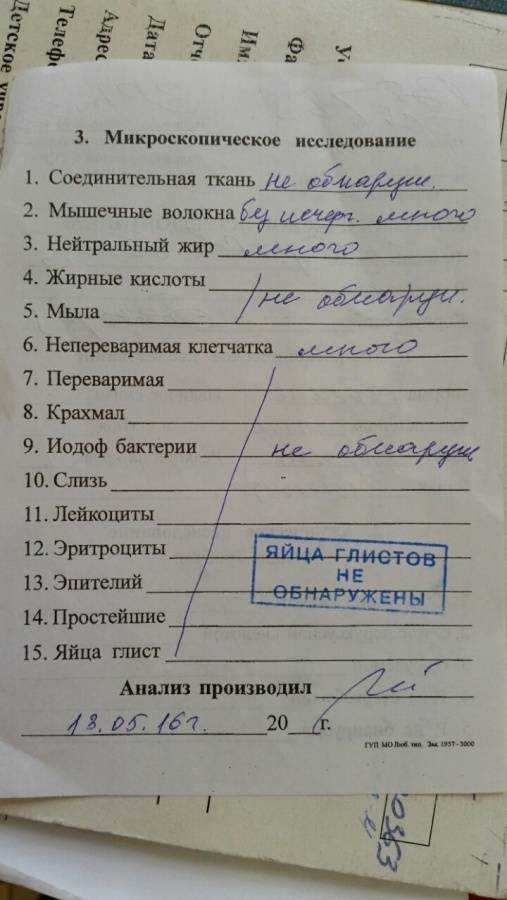 Детское учр
Телефо
Адрес
Дата
Отч
Им
Фа
У
3. Микроскопическое исследование
1. Соединительная ткань не обнаруж.
2. Мышечные волокна без исчерч. много
3. Нейтральный жир много
4. Жирные кислоты
не обнаруж.
5. Мыла
6. Непереваримая клетчатка много
7. Переваримая
8. Крахмал
9. Иодоф бактерии не обнаруж
10. Слизь
11. Лейкоциты
12. Эритроциты
13. Эпителий
14. Простейшие
15. Яйца глист
ЯЙЦА ГЛИСТОВ
НЕ
ОБНАРУЖЕНЫ
Анализ производил
13.05.16г. 20 г.
ГУП МО Люб. тип. Зак. 1957-2000